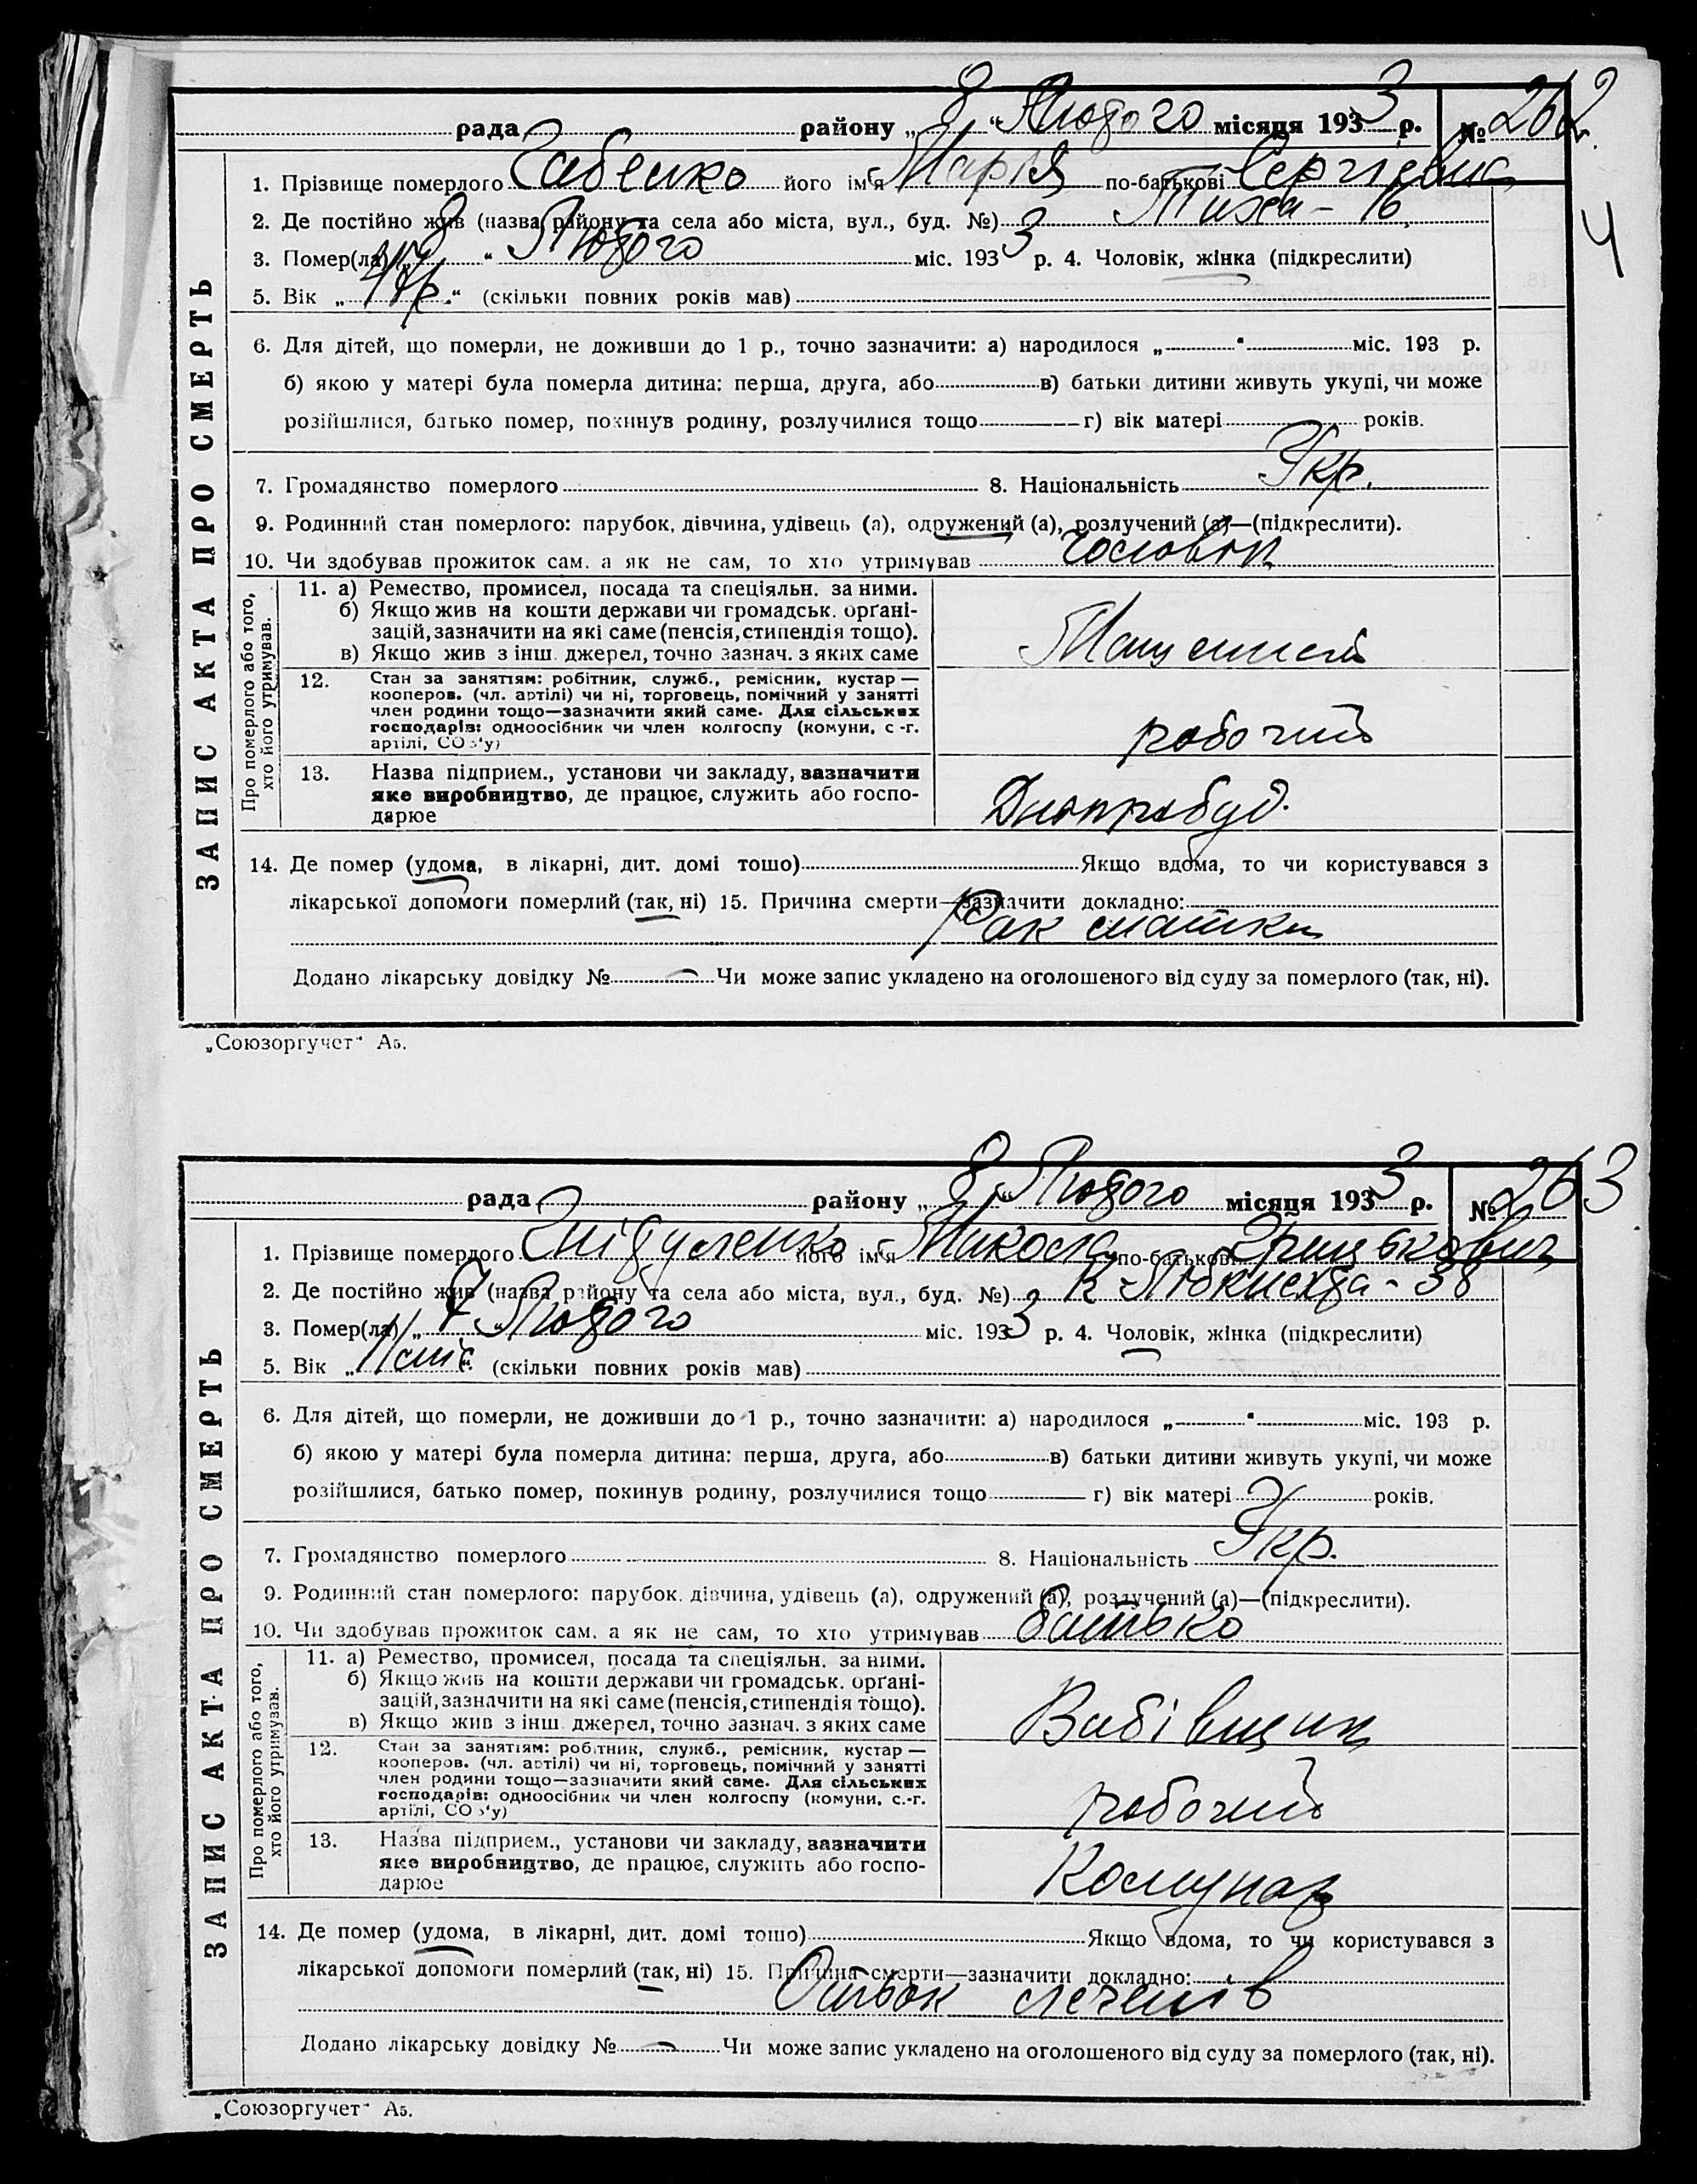 рада районУ „8“ Лютого місяця 1933 р. № 262.
4
ЗАПИС АКТА ПРО СМЕРТЬ
1. Прізвище померлого Габенко його ім'я Марія по-батькові Сергіевна
2. Де постійно жив (назва району та села або міста, вул., буд. №) Тиха - 16
3. Помер(ла) „8“ Лютого міс. 1933 р. 4. Чоловік, жінка (підкреслити)
5. Вік „ “ (скільки повних років мав)
6. Для дітей, що померли, не доживши до 1 р., точно зазначити: а) народилося „ “ міс. 193 р.
б) якою у матері була померла дитина: перша, друга, або в) батьки дитини живуть укупі, чи може
розійшлися, батько помер, покинув родину, розлучилися тощо г) вік матері років.
7. Громадянство померлого 8. Національність Укр.
9. Родинний стан померлого: парубок, дівчина, удівець (а), одружений (а), розлучений (а)—(підкреслити).
10. Чи здобував прожиток сам, а як не сам, то хто утримував чоловік
Про померлого або того, хто його утримував.
11. а) Ремество, промисел, посада та спеціяльн. за ними.
б) Якщо жив на кошти держави чи громадськ. орґані-
зацій, зазначити на які саме (пенсія, стипендія тощо).
в) Якщо жив з інш. джерел, точно зазнач. з яких саме
12. Стан за заняттям: робітник, служб., ремісник, кустар —
кооперов. (чл. артілі) чи ні, торговець, помічний у занятті
член родини тощо—зазначити який саме. Для сільських
господарів: одноосібник чи член колгоспу (комуни, с.-г.
артілі, СОЗ'у)
робочий
13. Назва підприєм., установи чи закладу, зазначити
яке виробництво, де працює, служить або госпо-
дарює
Днопробуд.
14. Де помер (удома, в лікарні, дит. домі тощо) Якщо вдома, то чи користувався з
лікарської допомоги померлий (так, ні) 15. Причина смерти—зазначити докладно:
Рак матки
Додано лікарську довідку № — Чи може запис укладено на оголошеного від суду за померлого (так, ні).
„Союзоргучет“ А5.
рада району „8“ Лютого місяця 1933 р. № 263
ЗАПИС АКТА ПРО СМЕРТЬ
1. Прізвище померлого Гнідуленко його ім'я Микола по-батькові Грицькович
2. Де постійно жив (назва району та села або міста, вул., буд. №) К-Лібкнехта - 38
3. Помер(ла) „7“ Лютого міс. 1933 р. 4. Чоловік, жінка (підкреслити)
5. Вік „11 міс.“ (скільки повних років мав)
6. Для дітей, що померли, не доживши до 1 р., точно зазначити: а) народилося „ “ міс. 193 р.
б) якою у матері була померла дитина: перша, друга, або в) батьки дитини живуть укупі, чи може
розійшлися, батько помер, покинув родину, розлучилися тощо г) вік матері років.
7. Громадянство померлого 8. Національність Укр.
9. Родинний стан померлого: парубок, дівчина, удівець (а), одружений (а), розлучений (а)—(підкреслити).
10. Чи здобував прожиток сам, а як не сам, то хто утримував батько
Про померлого або того, хто його утримував.
11. а) Ремество, промисел, посада та спеціяльн. за ними.
б) Якщо жив на кошти держави чи громадськ. орґані-
зацій, зазначити на які саме (пенсія, стипендія тощо).
в) Якщо жив з інш. джерел, точно зазнач. з яких саме
Вибівщик
12. Стан за заняттям: робітник, служб., ремісник, кустар —
кооперов. (чл. артілі) чи ні, торговець, помічний у занятті
член родини тощо—зазначити який саме. Для сільських
господарів: одноосібник чи член колгоспу (комуни, с.-г.
артілі, СОЗ'у)
робочий
13. Назва підприєм., установи чи закладу, зазначити
яке виробництво, де працює, служить або госпо-
дарює
Комунар
14. Де помер (удома, в лікарні, дит. домі тощо) Якщо вдома, то чи користувався з
лікарської допомоги померлий (так, ні) 15. Причина смерти—зазначити докладно:
легенів
Додано лікарську довідку № — Чи може запис укладено на оголошеного від суду за померлого (так, ні).
„Союзоргучет“ А5.